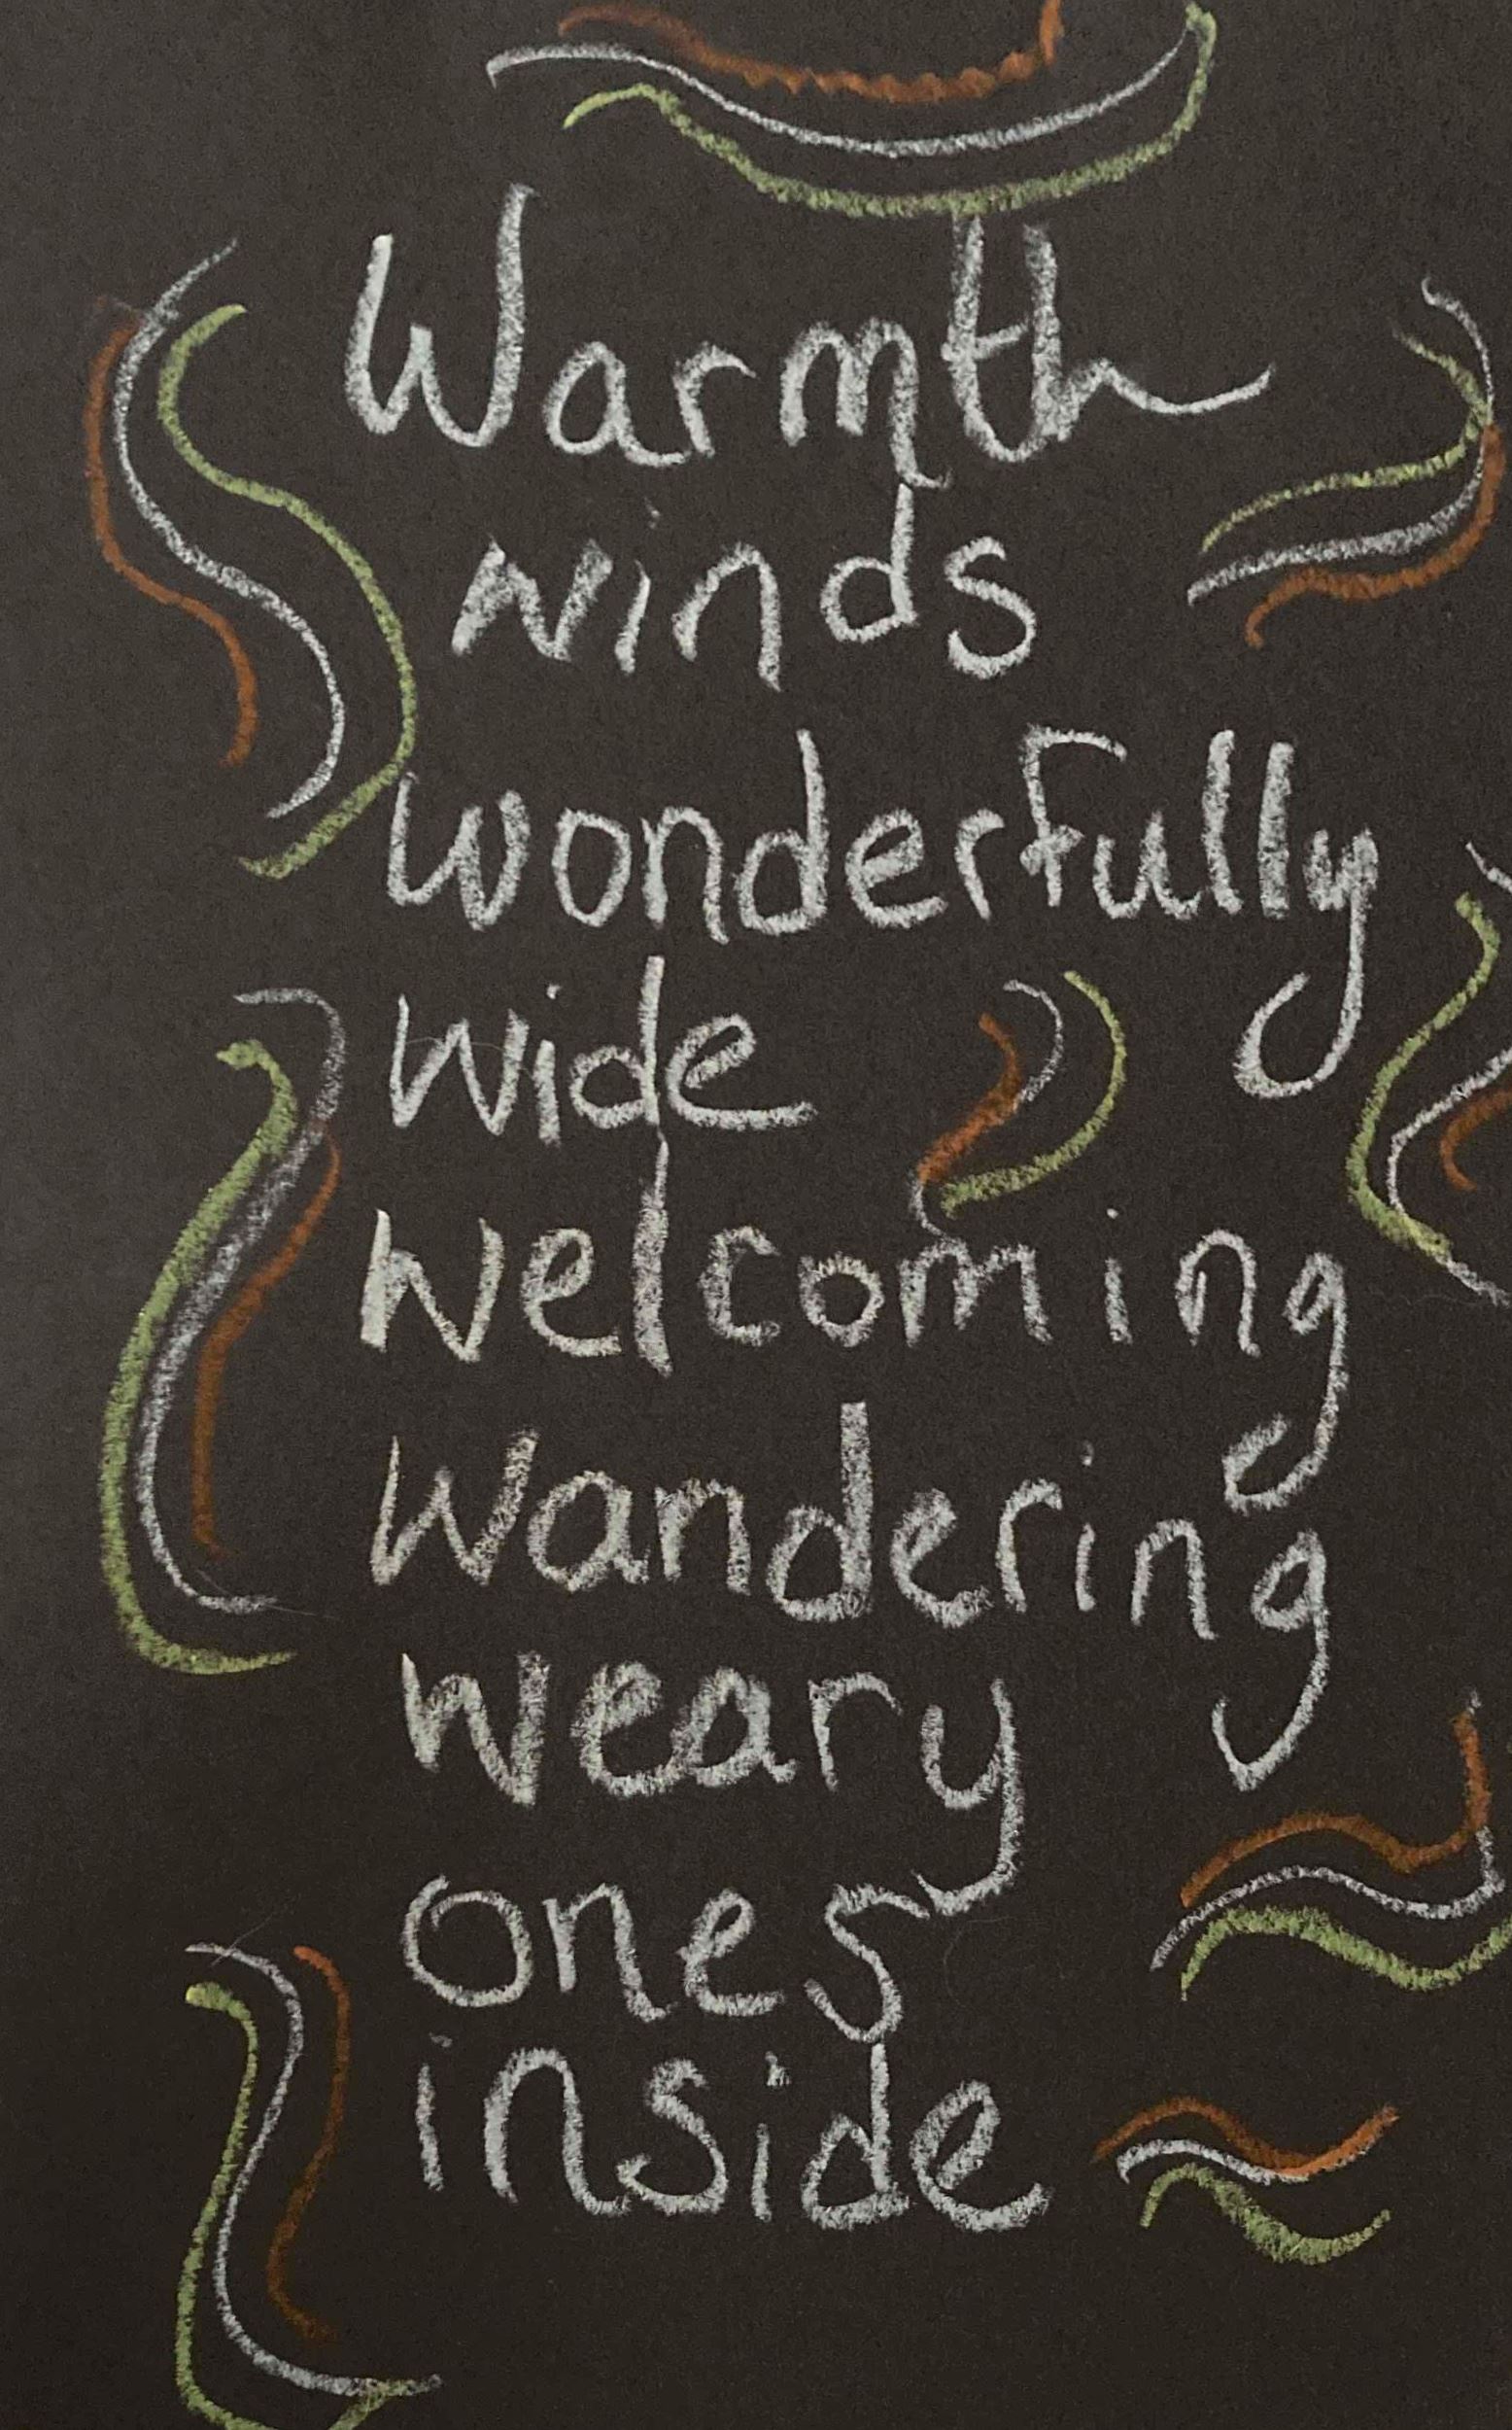 Warmth
winds
wonderfully
wide
welcoming
Wandering
weary
ones
inside